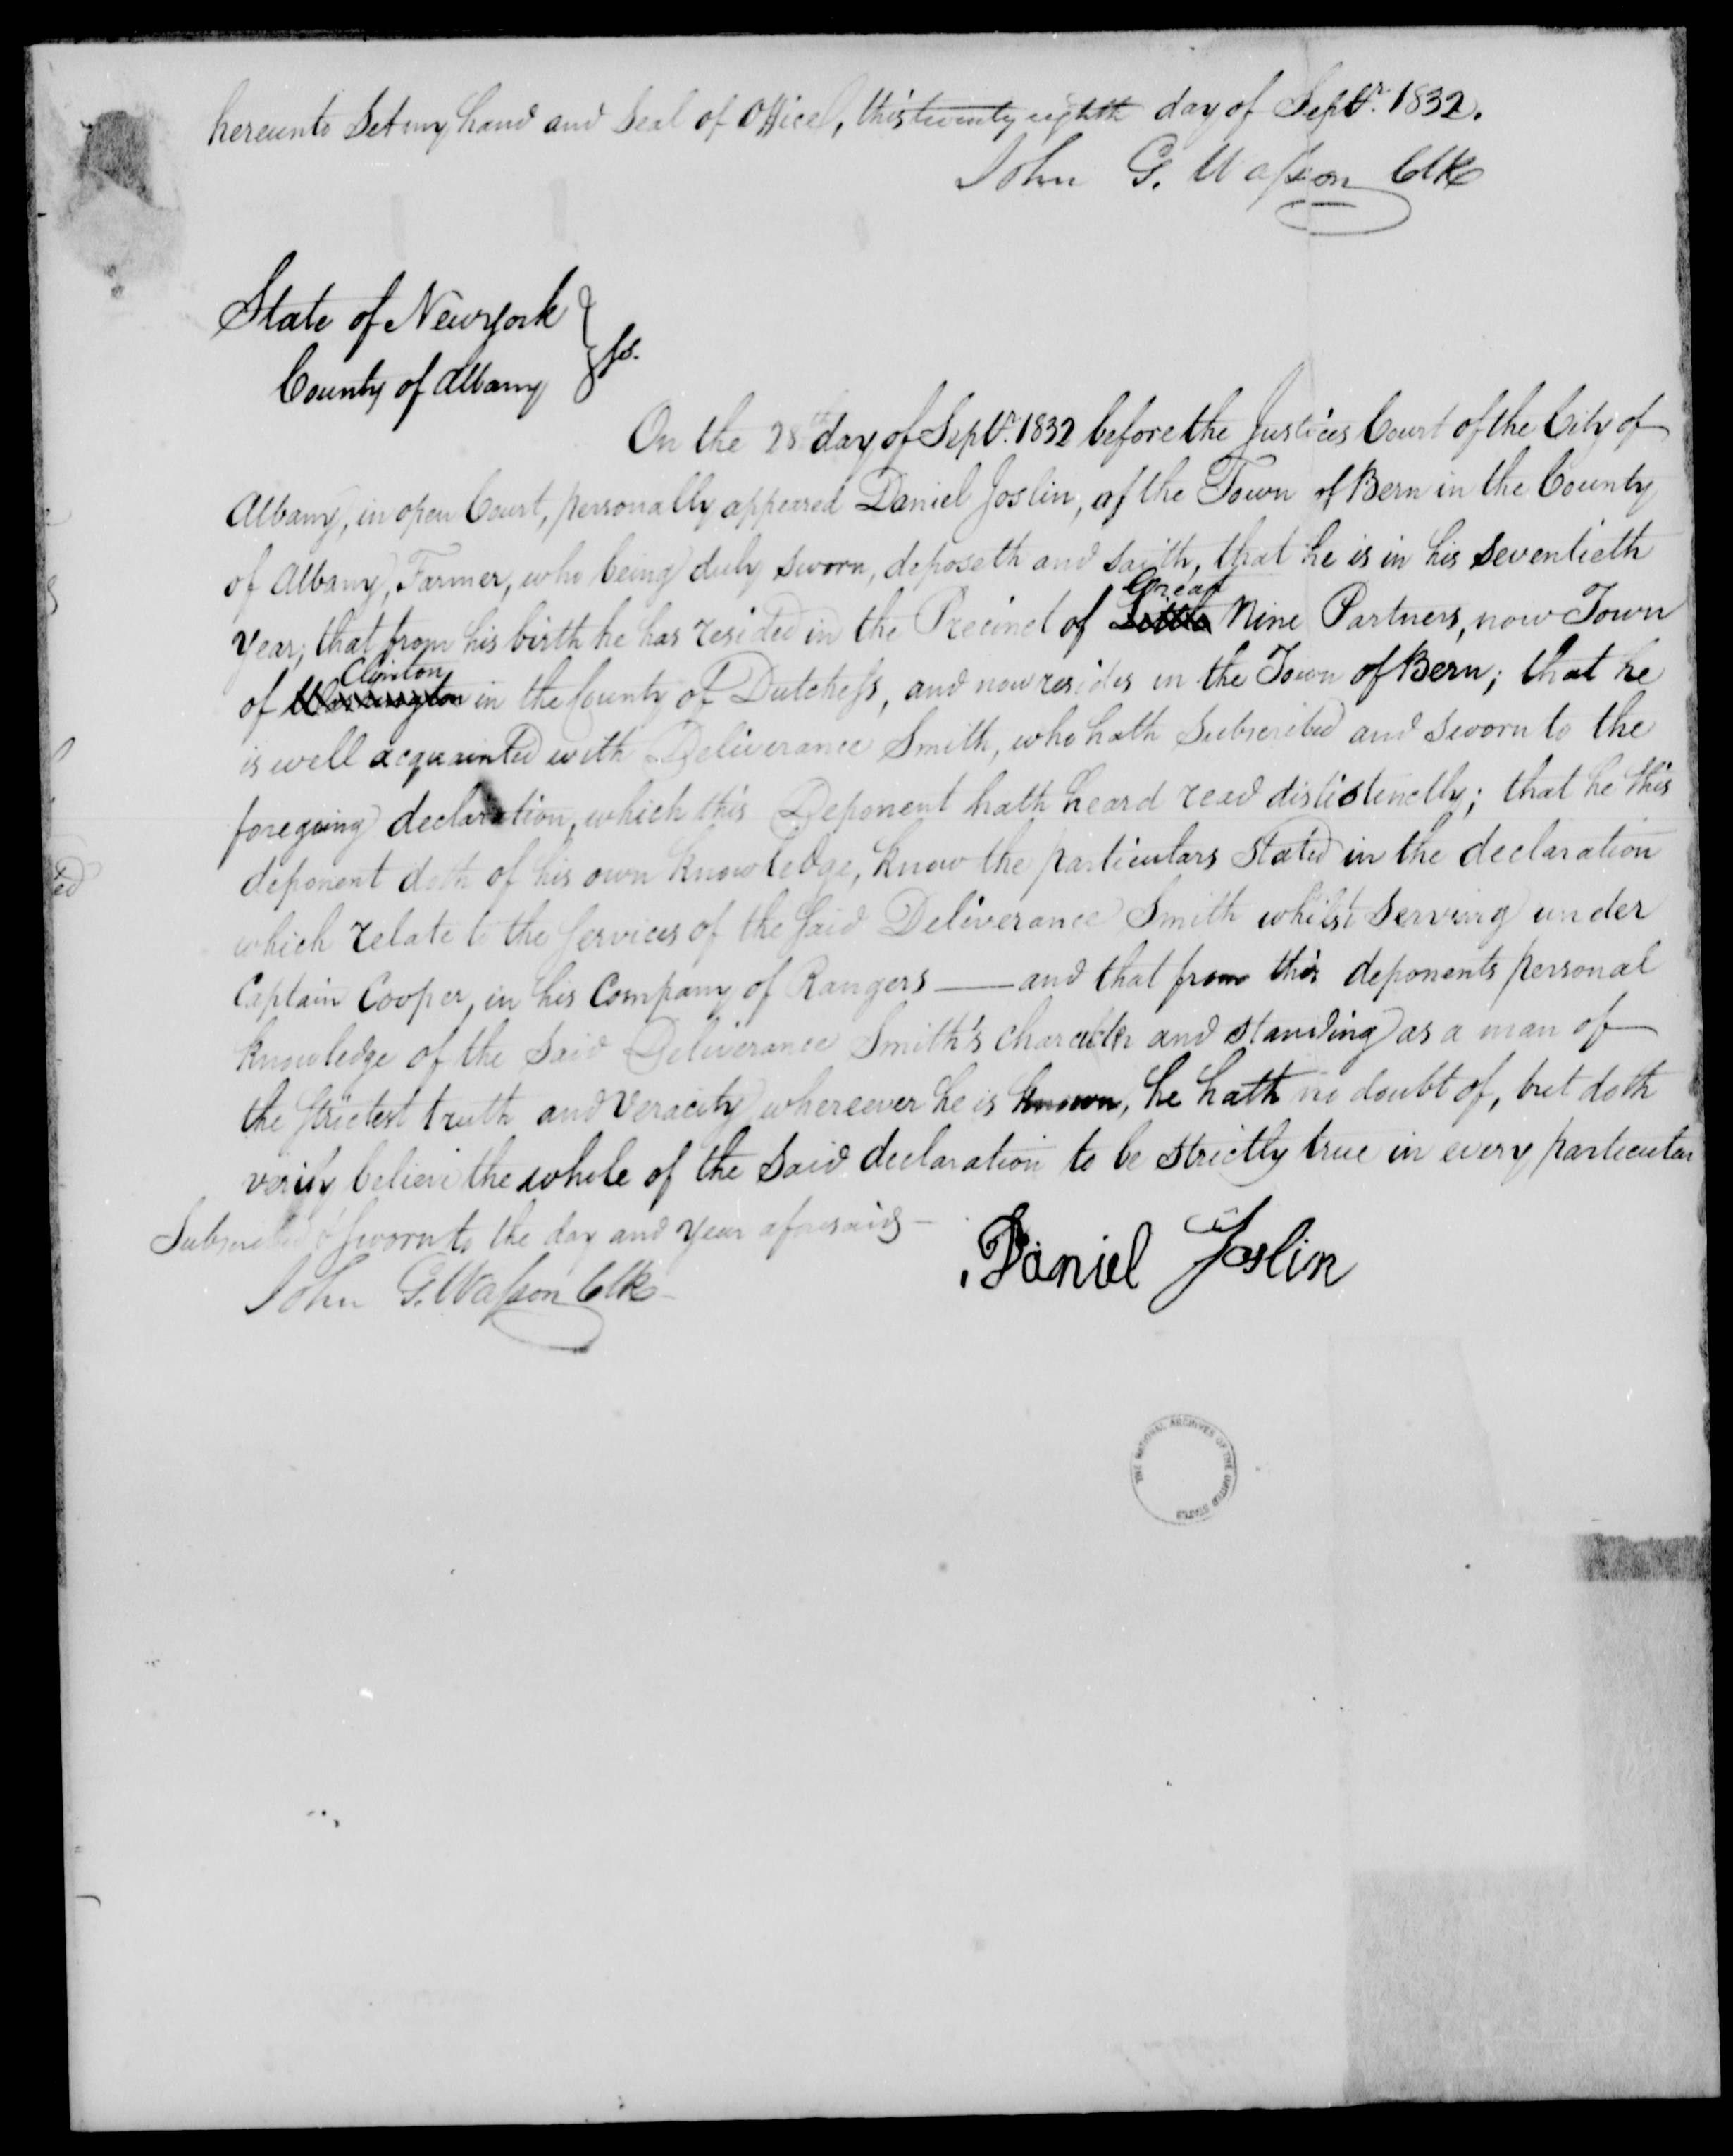 hereunto Set my hand and Seal of Office, this twenty eighth day of Septr. 1832.
John G. Wasson Clk
State of Newyork
ss.
County of Albany
On the 28th day of Septr. 1832 before the Justices Court of the City of
Albany, in open Court, personally appeared Daniel Joslin, of the Town of Bern in the County
of Albany, Farmer, who being duly sworn, deposeth and saith, that he is in his seventieth
Great
year; that from his birth he has resided in the Precinct of Little Nine Partners, now Town
Clinton
of Washington in the County of Dutchess, and now resides in the Town of Bern; that he
is well acquainted with Deliverance Smith, who hath Subscribed and sworn to the
foregoing declaration, which this Deponent hath heard read dististinctly; that he this
deponent doth of his own knowledge, know the particulars stated in the declaration
which relate to the Services of the Said Deliverance Smith whilst Serving under
Captain Cooper, in his Company of Rangers — and that from this deponents personal
knowledge of the Said Deliverance Smith's character and standing as a man of
the strictest truth and veracity whereever he is known, he hath no doubt of, but doth
verily believe the whole of the Said declaration to be strictly true in every particular
Subscribed & Sworn to the day and year aforesaid —
Daniel Joslin
John G. Wasson Clk
THE NATIONAL ARCHIVES OF THE UNITED STATES